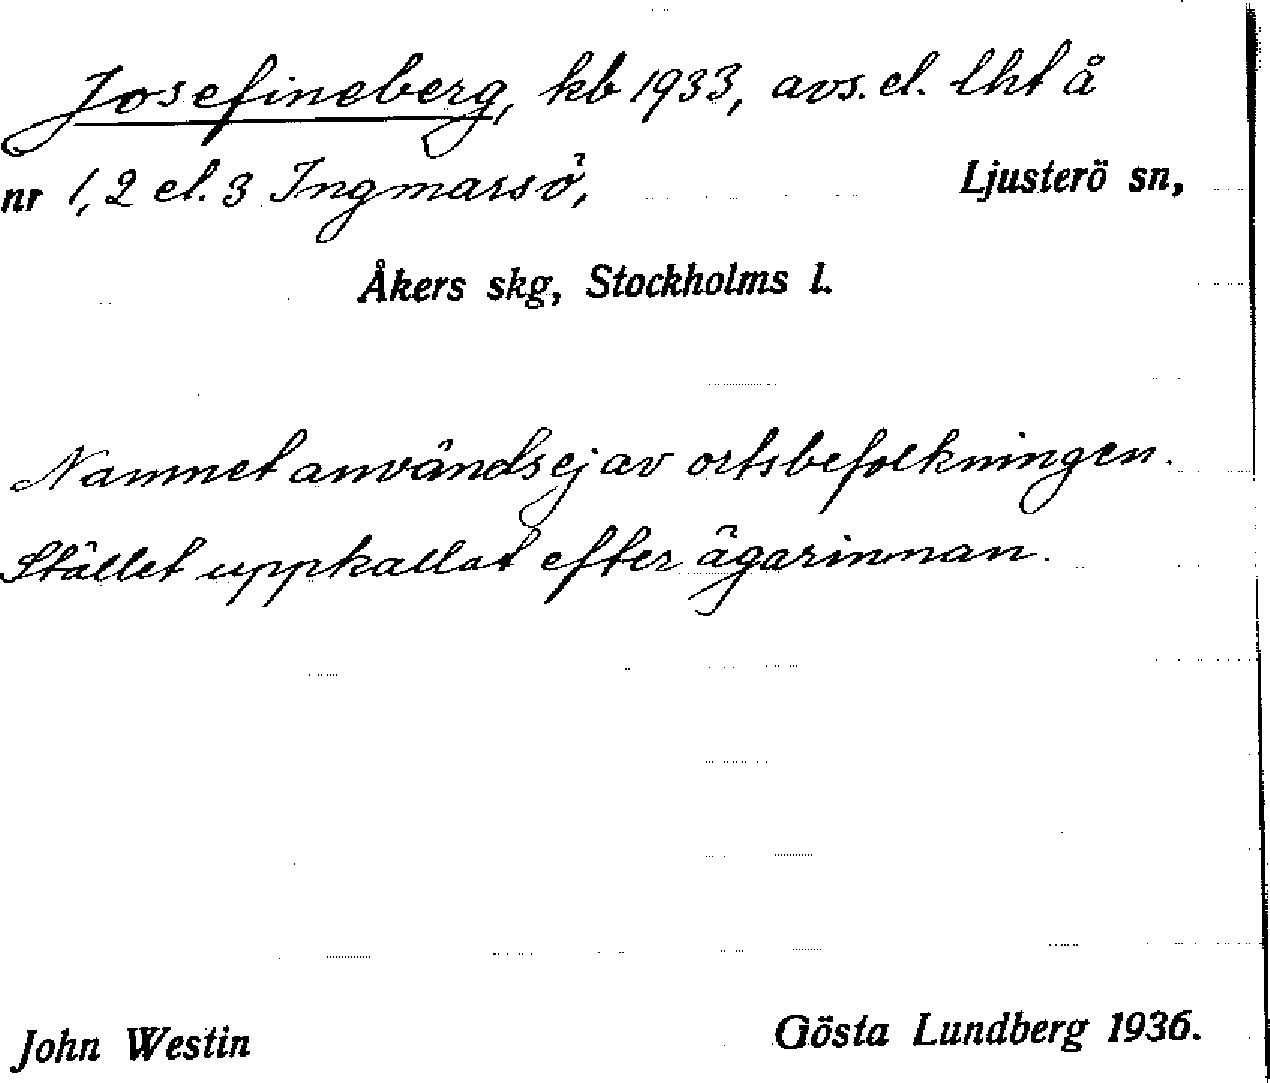 Josefineberg, kb 1933, avs. el. lht å
nr 1, 2 el. 3 Ingmarsö, Ljusterö sn,
Åkers skg, Stockholms l.
Namnet användes ej av ortsbefolkningen.
Stället uppkallat efter ägarinnan.
John Westin Gösta Lundberg 1936.